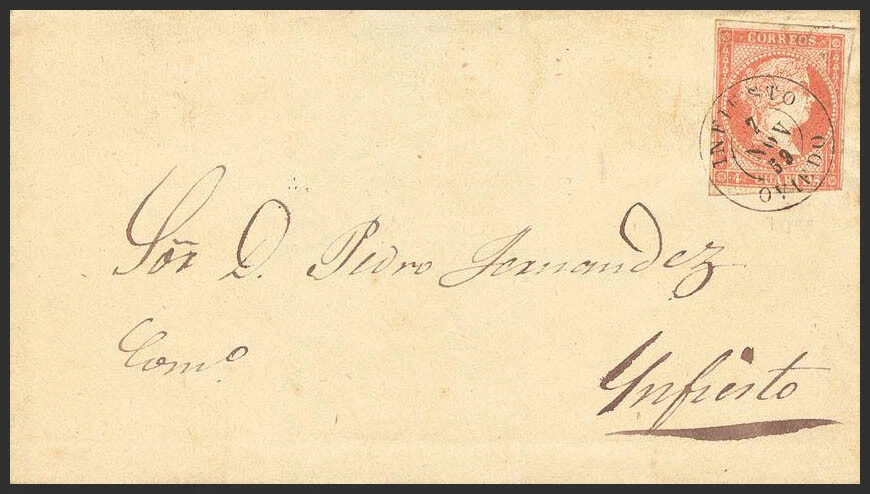 CORREOS
INFIESTO
7 NOV 59
OVIEDO
4 CUARTOS
Sõr D. Pedro Fernandez
Com.o
Ynfiesto